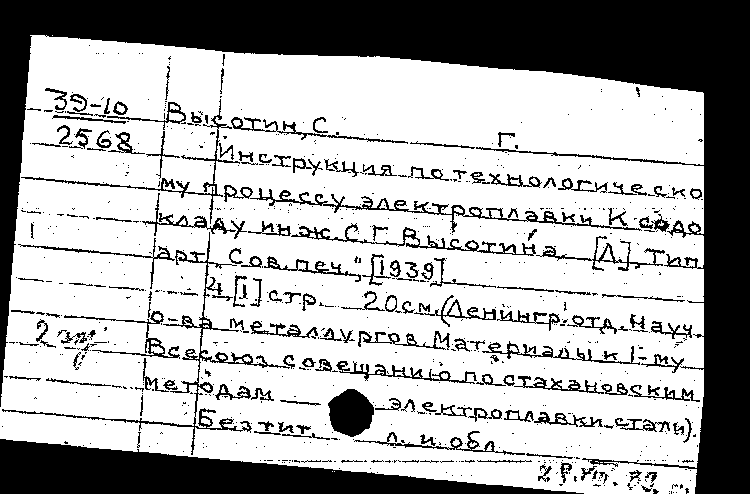 39-10
2568
Высотин, С. Г.
Инструкция по технологическо
му процессу электроплавки К содо
кладу инж. С. Г. Высотина. [Л.], Тип.
арт. „Сов. печ.", [1939].
4, [1] стр. 20 см. (Ленингр. отд. Науч.
о-ва металлургов. Материалы к 1-му
Всесоюз. совещанию по стахановским
методам электроплавки стали).
Без тит. л. и обл.
1
2 эк.